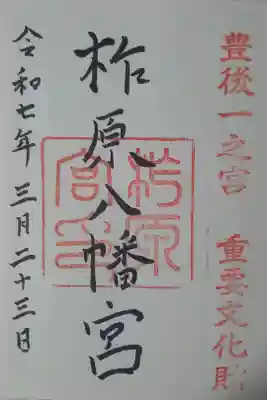 豊後一之宮 重要文化財
柞原八幡宮
令和七年三月二十三日